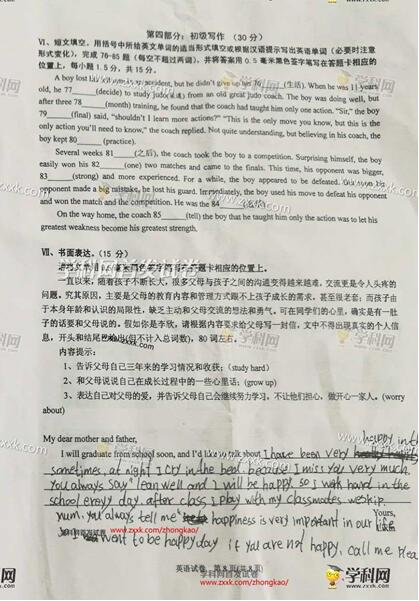 第四部分：初级写作 （30 分）
Ⅵ、短文填空。用括号中所给英文单词的适当形式填空或根据汉语提示写出英语单词（必要时注意
形式变化），完成 76-85 题（每空不超过两词），并将答案用 0.5 毫米黑色签字笔写在答题卡相应的
位置上，每小题 1.5 分，共 15 分。
A boy lost his in an accident, but he didn't give up his 76 (生活). When he was 11 years
old, he 77 (decide) to study judo(柔道) from an old great judo coach. The boy was doing well, but
after three 78 (month) training, he found that the coach had taught him only one action. "Sir," the boy
79 (final) said, "shouldn't I learn more actions?" "This is the only move you know, but this is the
only action you'll need to know," the coach replied. Not quite understanding, but believing in his coach, the
boy kept 80 (practice).
Several weeks 81 (之后), the coach took the boy to a competition. Surprising himself, the boy
easily won his 82 (one) two matches and came to the finals. This time, his opponent was bigger,
83 (strong) and more experienced. For a while, the boy appeared to be defeated. his
opponent made a big mistake, he lost his guard. Immediately, the boy used his move to defeat his opponent
and won the match and the competition. He was the 84
On the way home, the coach 85 (tell) the boy that he taught him only the action was to let his
greatest weakness become his greatest strength.
Ⅶ、书面表达。（15 分）
题卡相应的位置上。
一直以来，随着孩子不断长大，很多父母与孩子之间的沟通变得越来越难，交流更是令人头疼的
问题。究其原因，主要是父母的教育内容和管理方式跟不上孩子成长的需求，甚至很老套；而孩子由
于本身年龄和认识的局限性，缺乏主动和父母交流的想法和勇气。可在同学们的心里，确实是有一肚
子的话要和父母说的。假如你是李欣，请根据内容要求给父母写一封信，文中不得出现真实的个人信
息，开头和结尾已给出(不计入总词数)，80 词左右。
内容提示：
1、告诉父母自己三年来的学习情况和收获；(study hard)
2、和父母说说自己在成长过程中的一些心里话；(grow up)
3、表达自己对父母的爱，并告诉父母自己会继续努力学习，不让他们担心，做开心一家人。(worry
about)
My dear mother and father,
happy in the
I will graduate from school soon, and I'd like to talk about I have been very
sometimes, at night I cry in the bed because I miss you very much.
You always say "lean well and I will be happy. so I work hard in the
school every day, after class, I play with my classmates
You always tell me happiness is very important in our life
Yours,
went to be happy day if you are not happy, call me
英语试卷 第 8 页(共 8 页)
学科网首发试卷
www.zxxk.com/zhongkao/
学科网
www.zxxk.com